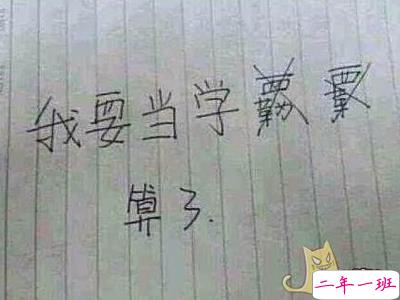 我要当学
算了.
二年一班